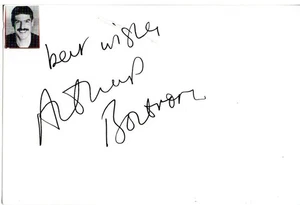 best wishes
Arthur
Bostrom